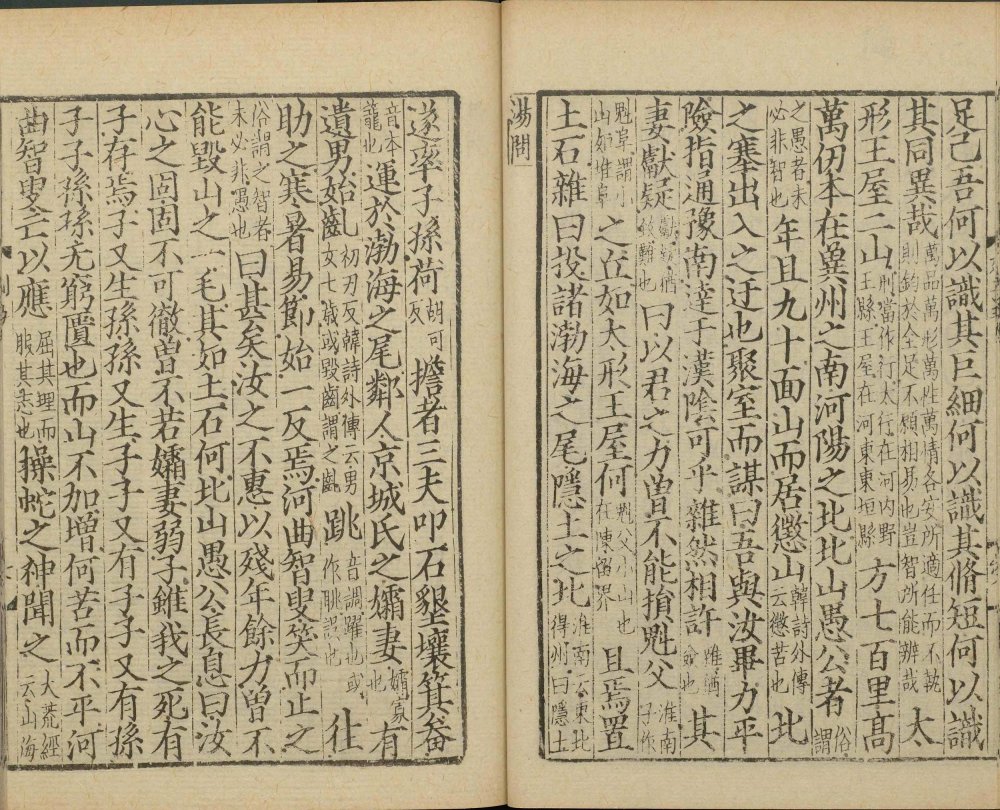 足己吾何以識其巨細何以識其脩短何以識
其同異哉萬品萬形萬性萬情各安所適任而不執則鈞於全足不願相易也豈智所能辨哉太
形王屋二山形當作行太行在河內野王縣王屋在河東東垣縣方七百里髙
萬仞本在兾州之南河陽之北北山愚公者俗謂
之愚者未必非智也年且九十面山而居懲山韓詩外傳云懲苦也北
之塞出入之迂也聚室而謀曰吾與汝畢力平
險指通豫南達于漢隂可乎雜然相許雜猶僉也其
妻獻疑獻疑猶致難也曰以君之力曾不能損魁父淮南子作
魁阜謂小山如堆阜之丘如太形王屋何魁父小山也在陳留界且焉置
土石雜曰投諸渤海之尾隱土之北淮南云東北得州曰隱土
湯問
遂率子孫荷胡可反擔者三夫叩石墾壤箕畚
音本籠也運於渤海之尾鄰人京城氏之孀妻孀寡也有
遺男始齔初刃反韓詩外傳云男女七歲或毀齒謂之齔跳音調躍也或作眺誤也往
助之寒暑易節始一反焉河曲智叟笑而止之
俗謂之智者未必非愚也曰甚矣汝之不惠以殘年餘力曾不
能毀山之一毛其如土石何北山愚公長息曰汝
心之固固不可徹曾不若孀妻弱子雖我之死有
子存焉子又生孫孫又生子子又有子子又有孫
子子孫孫无窮匱也而山不加增何苦而不平河
曲智叟亡以應屈其理而服其志也操蛇之神聞之大荒經云山海